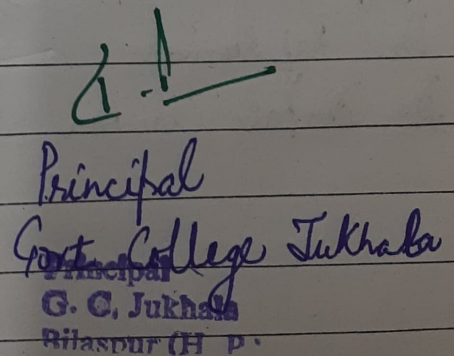 Principal
Govt College Jukhala
Principal
G. C. Jukhala
Bilaspur (H P.